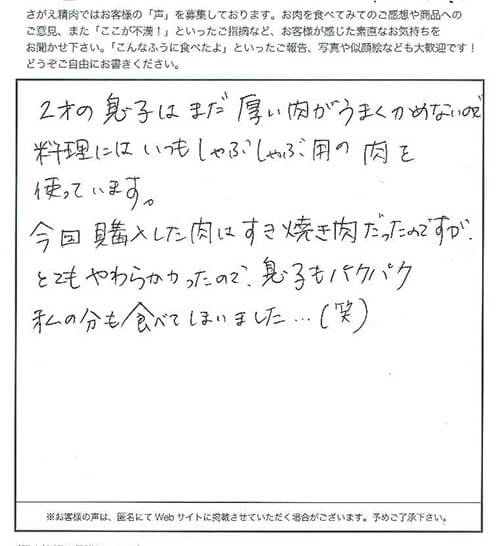 さがえ精肉ではお客様の「声」を募集しております。お肉を食べてみてのご感想や商品への
ご意見、また「ここが不満！」といったご指摘など、お客様が感じた素直なお気持ちを
お聞かせ下さい。「こんなふうに食べたよ」といったご報告、写真や似顔絵なども大歓迎です！
どうぞご自由にお書きください。
2才の息子はまだ厚い肉がうまくかめないので
料理にはいつもしゃぶしゃぶ用の肉を
使っています。
今回購入した肉はすき焼き肉だったのですが、
とてもやわらかかったので、息子もパクパク
私の分も食べてしまいました…(笑)
※お客様の声は、匿名にてWebサイトに掲載させていただく場合がございます。予めご了承下さい。